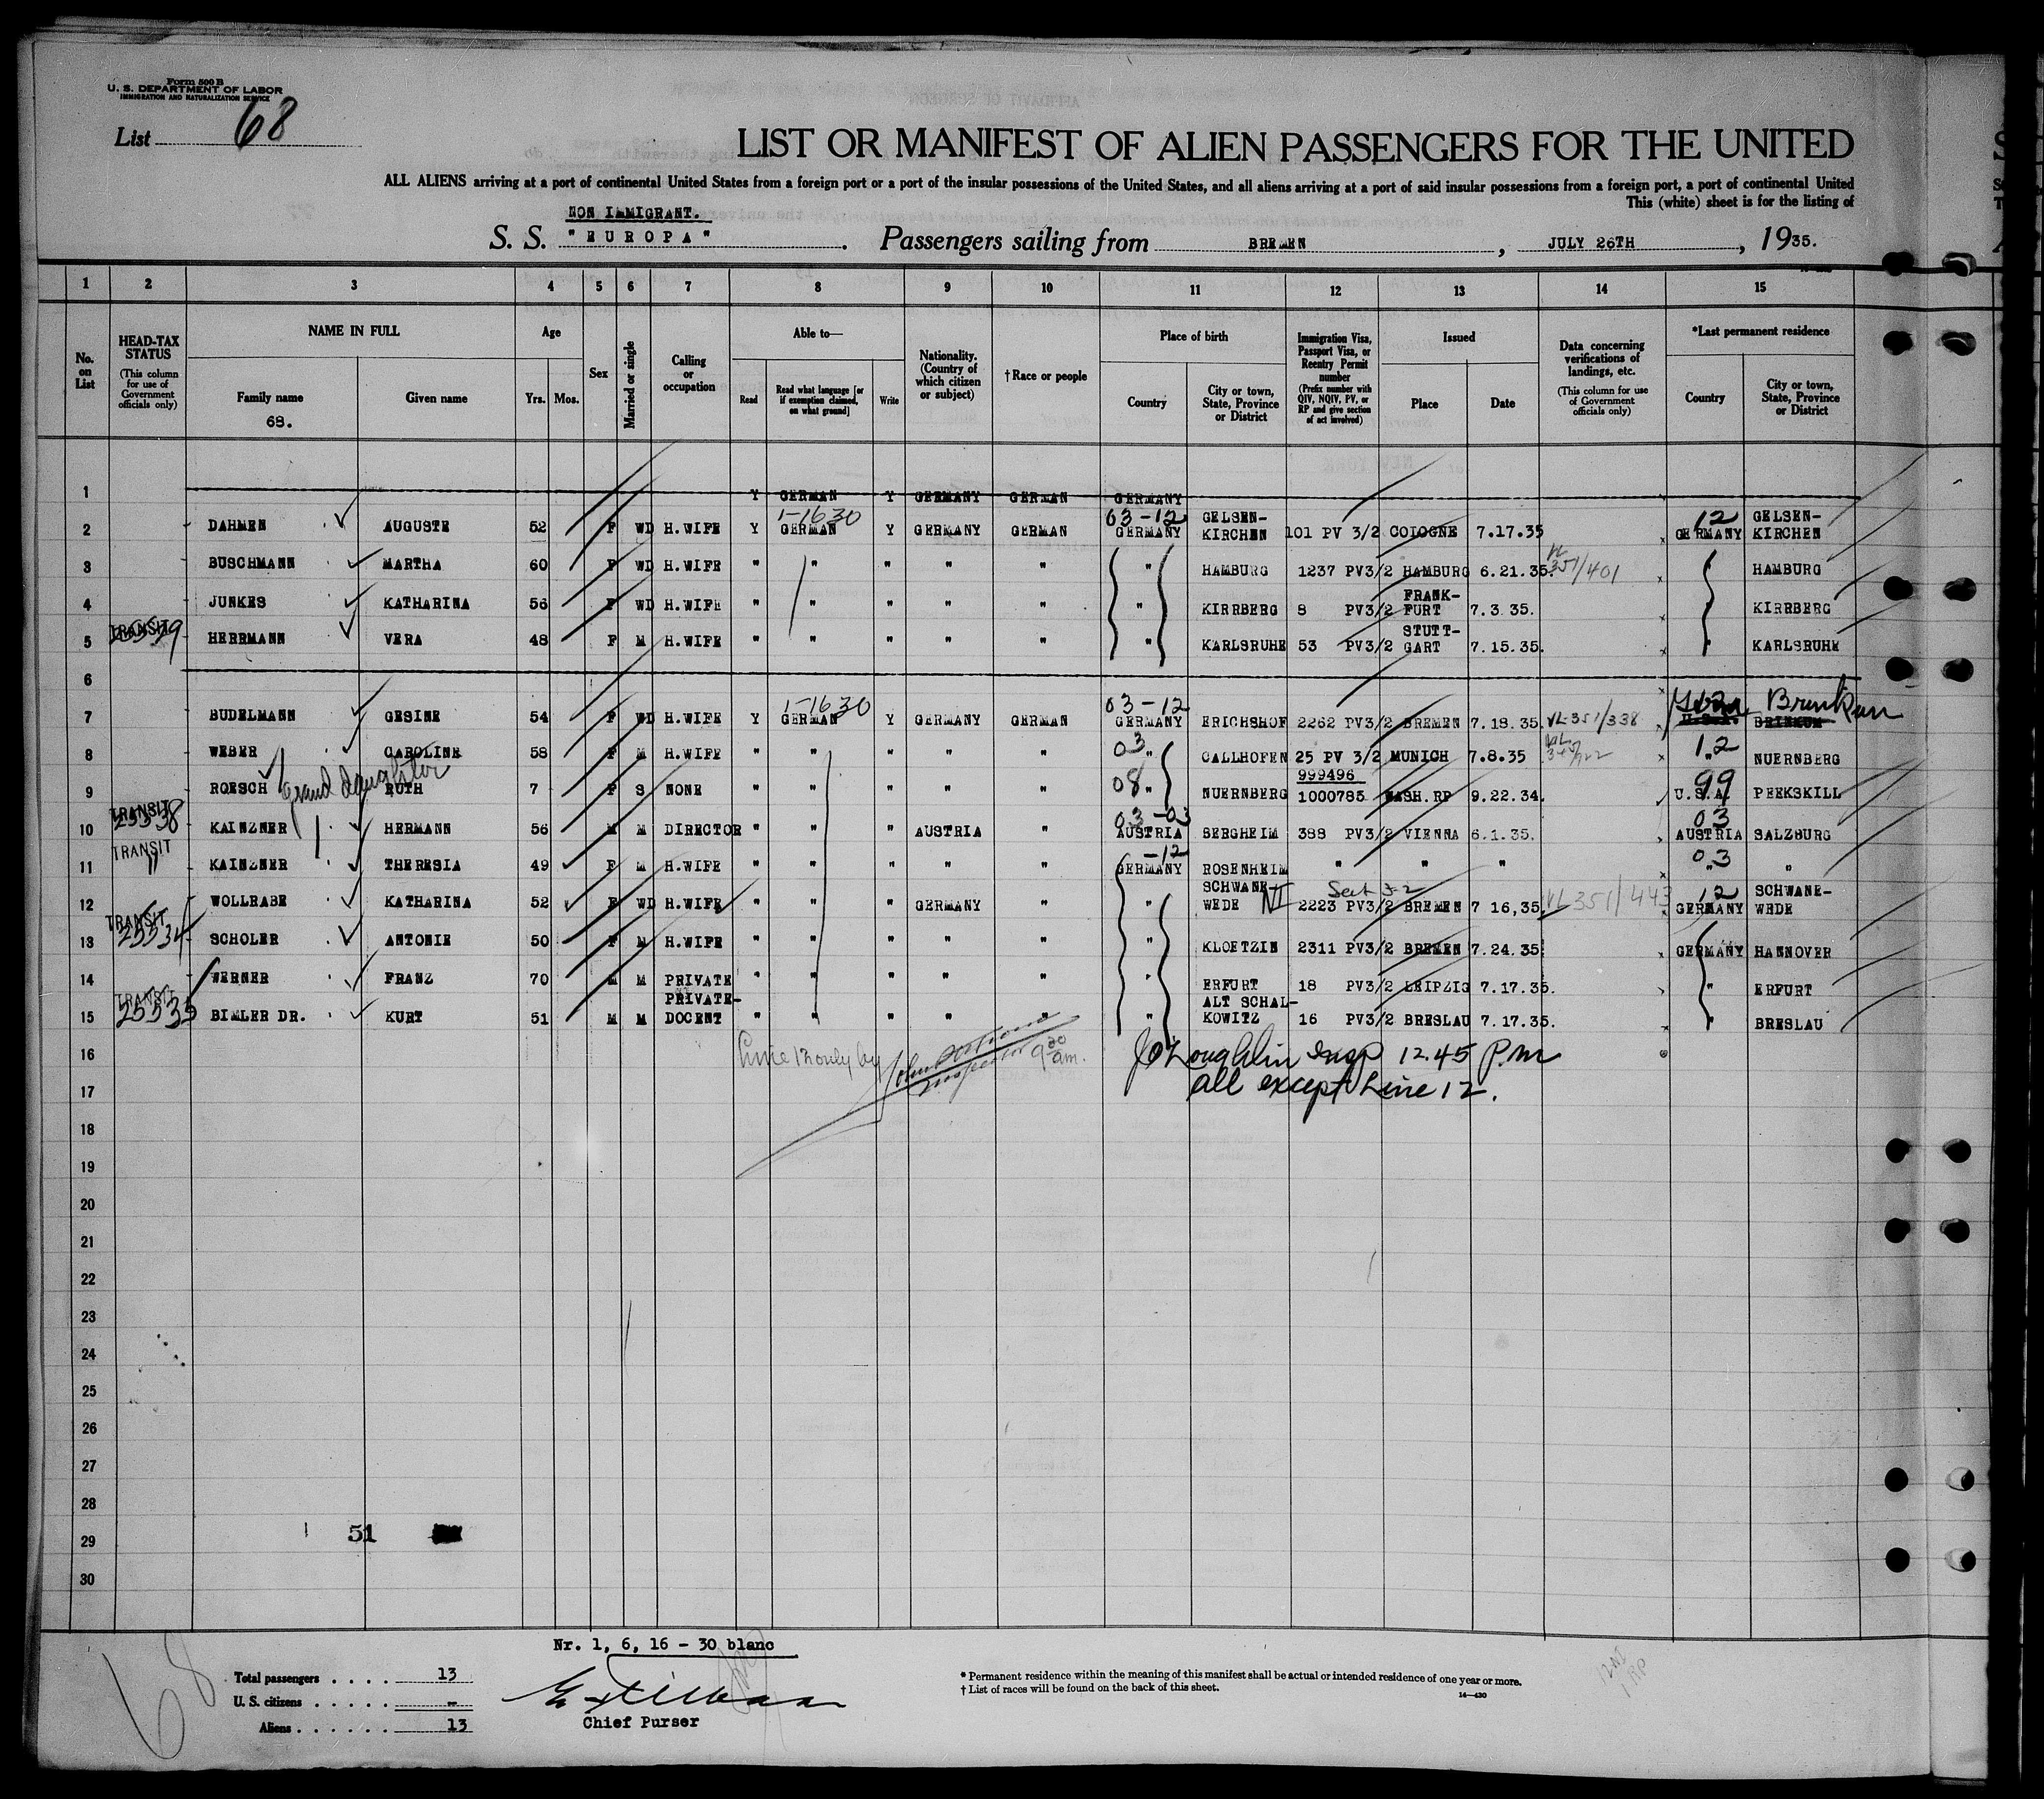 Form 500 B
U. S. DEPARTMENT OF LABOR
IMMIGRATION AND NATURALIZATION SERVICE
List 68
LIST OR MANIFEST OF ALIEN PASSENGERS FOR THE UNITED
ALL ALIENS arriving at a port of continental United States from a foreign port or a port of the insular possessions of the United States, and all aliens arriving at a port of said insular possessions from a foreign port, a port of continental United
This (white) sheet is for the listing of
NON IMMIGRANT.
S. S. "EUROPA". Passengers sailing from BREMEN, JULY 26TH, 1935.
1 2 3 4 5 6 7 8 9 10 11 12 13 14 15
No. on List
HEAD-TAX STATUS (This column for use of Government officials only)
NAME IN FULL
Family name
68.
Given name
Age
Yrs. Mos.
Sex
Married or single
Calling or occupation
Able to—
Read
Read what language [or if exemption claimed, on what ground]
Write
Nationality. (Country of which citizen or subject)
† Race or people
Place of birth
Country
City or town, State, Province or District
Immigration Visa, Passport Visa, or Reentry Permit number (Prefix number with QIV, NQIV, PV, or RP and give section of act involved)
Issued
Place
Date
Data concerning verifications of landings, etc. (This column for use of Government officials only)
*Last permanent residence
Country
City or town, State, Province or District
1 Y GERMAN Y GERMANY GERMAN GERMANY
1-1630 03-12 12
2 DAHMEN AUGUSTE 52 F WD H.WIFE Y GERMAN Y GERMANY GERMAN GERMANY GELSEN-KIRCHEN 101 PV 3/2 COLOGNE 7.17.35 GERMANY GELSEN-KIRCHEN
3 BUSCHMANN MARTHA 60 F WD H.WIFE " " " " " " HAMBURG 1237 PV3/2 HAMBURG 6.21.35. VL 351/401 HAMBURG
4 JUNKES KATHARINA 56 F WD H.WIFE " " " " " " KIRRBERG 8 PV3/2 FRANK-FURT 7.3.35. " KIRRBERG
TRANSIT
5 HERRMANN VERA 48 F M H.WIFE " " " " " " KARLSRUHE 53 PV3/2 STUTT-GART 7.15.35. " KARLSRUHE
6
1-1630 03-12
7 BUDELMANN GESINE 54 F WD H.WIFE Y GERMAN Y GERMANY GERMAN GERMANY ERICHSHOF 2262 PV3/2 BREMEN 7.18.35 VL 351/338 U.S.A. BRINKUM
03 12
8 WEBER CAROLINE 58 F M H.WIFE " " " " " " CALLHOFEN 25 PV 3/2 MUNICH 7.8.35 " NUERNBERG
grand daughter
08 999496 99
9 ROESCH RUTH 7 F S NONE " " " " " " NUERNBERG 1000785 WASH. RP 9.22.34. U.S.A. PEEKSKILL
TRANSIT 25538 03-03 03
10 KAINZNER HERMANN 56 M M DIRECTOR " " " AUSTRIA " AUSTRIA BERGHEIM 388 PV3/2 VIENNA 6.1.35. AUSTRIA SALZBURG
TRANSIT " -12 03
11 KAINZNER THERESIA 49 F M H.WIFE " " " " " GERMANY ROSENHEIM " " " " "
Sect 3-2 12
12 WOLLRABE KATHARINA 52 F WD H.WIFE " " " GERMANY " " SCHWANE-WEDE 2223 PV3/2 BREMEN 7 16,35 VL 351/443 GERMANY SCHWANE-WEDE
TRANSIT 25534
13 SCHOLER ANTONIE 50 F M H.WIFE " " " " " " KLOETZIN 2311 PV3/2 BREMEN 7.24.35 GERMANY HANNOVER
14 WERNER FRANZ 70 M M PRIVATE " " " " " " ERFURT 18 PV3/2 LEIPZIG 7.17.35. " ERFURT
TRANSIT 25535
15 BIMLER DR. KURT 51 M M PRIVATE-DOCENT " " " " " " ALT SCHAL-KOWITZ 16 PV3/2 BRESLAU 7.17.35. " BRESLAU
16 Line 12 only by Inspector 9 30 am. J O'Loughlin Insp 12.45 P.m
17 all except Line 12.
18
19
20
21
22
23
24
25
26
27
28
29 51
30
Nr. 1, 6, 16 - 30 blanc
Total passengers . . . . 13
U. S. citizens . . . . . -
Aliens . . . . . . 13
Chief Purser
68
* Permanent residence within the meaning of this manifest shall be actual or intended residence of one year or more.
† List of races will be found on the back of this sheet.
14—430
12 NI
1 RP